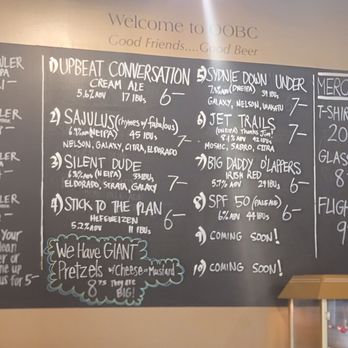 Welcome to OOBC
Good Friends....Good Beer
1) UPBEAT CONVERSATION
CREAM ALE
5.6% ABV 17 IBUs 6-
2) SAJULUS (rhymes w/ fabulous)
6.9% (NEIPA) 45 IBUs
NELSON, GALAXY, CITRA, ELDORADO 7-
3) SILENT DUDE
(NEIPA)
ELDORADO, STRATA, GALAXY 7-
4) STICK TO THE PLAN
HEFEWEIZEN
5.2% ABV 11 IBUs 6-
We Have GIANT
Pretzels w/ Cheese or Mustard
8.75 They are
BIG!
5) SYDNIE DOWN UNDER
7.5% ABV (DNEIPA) IBUs
GALAXY, NELSON, WAKATU 7-
6) JET TRAILS
(DNEIPA) Thanks Jim!
8.1% ABV 42 IBUs
MOSAIC, SABRO, CITRA 7-
7) BIG DADDY O'LAPPERS
IRISH RED
5.7% ABV 29 IBUs 6-
8) SPF 50 (PALE ALE)
6% ABV 44 IBUs 6-
9) COMING SOON!
10) COMING SOON!
MERC
T-SHIR
20
GLASS
8
FLIGHT
9
WLER
LER
LER
LER
Your
lean
er or
me up
us for 5-